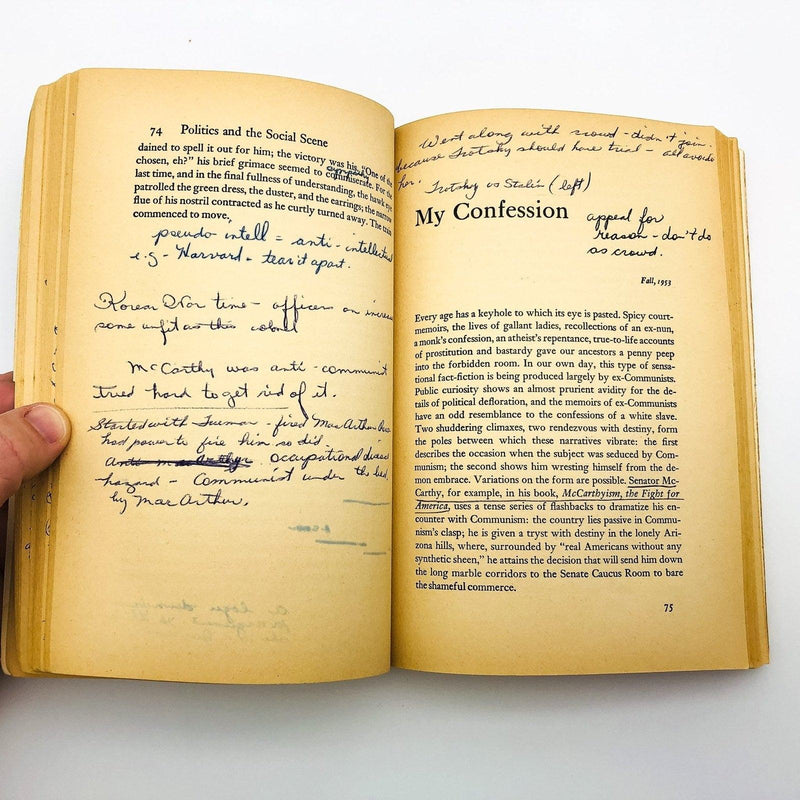 74 Politics and the Social Scene
dained to spell it out for him; the victory was his. "One of the
chosen, eh?" his brief grimace seemed to commiserate. For the
last time, and in the final fullness of understanding, the hawk eye
patrolled the green dress, the duster, and the earrings; the narrow
flue of his nostril contracted as he curtly turned away. The train
commenced to move.
pseudo-intell = anti-intellectual
e.g - Harvard - tear it apart.
Korean War time - officers on increase
some unfit as this colonel
McCarthy was anti-communist
tried hard to get rid of it.
Started with Truman - fired MacArthur
had power to fire him so did.
occupational disease
hazard - Communist under the bed
by MacArthur.
Went along with crowd - didn't join.
because Trotsky should have trial - all avoide
her. Trotsky vs Stalin (left)
My Confession
appeal for
reason - don't do
as crowd.
Fall, 1953
Every age has a keyhole to which its eye is pasted. Spicy court-
memoirs, the lives of gallant ladies, recollections of an ex-nun,
a monk's confession, an atheist's repentance, true-to-life accounts
of prostitution and bastardy gave our ancestors a penny peep
into the forbidden room. In our own day, this type of sensa-
tional fact-fiction is being produced largely by ex-Communists.
Public curiosity shows an almost prurient avidity for the de-
tails of political defloration, and the memoirs of ex-Communists
have an odd resemblance to the confessions of a white slave.
Two shuddering climaxes, two rendezvous with destiny, form
the poles between which these narratives vibrate: the first
describes the occasion when the subject was seduced by Com-
munism; the second shows him wresting himself from the de-
mon embrace. Variations on the form are possible. Senator Mc-
Carthy, for example, in his book, McCarthyism, the Fight for
America, uses a tense series of flashbacks to dramatize his en-
counter with Communism: the country lies passive in Commu-
nism's clasp; he is given a tryst with destiny in the lonely Ari-
zona hills, where, surrounded by "real Americans without any
synthetic sheen," he attains the decision that will send him down
the long marble corridors to the Senate Caucus Room to bare
the shameful commerce.
75